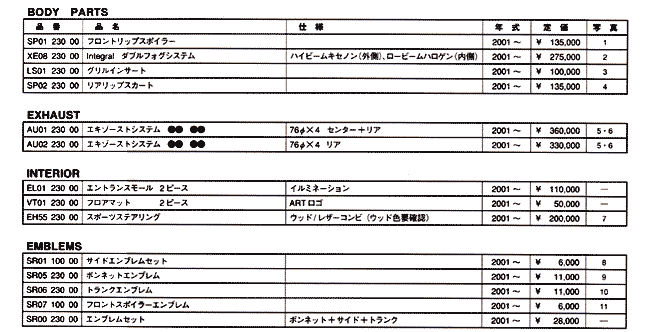 BODY PARTS
品 番 品 名 仕 様 年 式 定 価 写 真
SP01 230 00 フロントリップスポイラー 2001～ ¥ 135,000 1
XE08 230 00 Integral ダブルフォグシステム ハイビームキセノン(外側)、ロービームハロゲン(内側) 2001～ ¥ 275,000 2
LS01 230 00 グリルインサート 2001～ ¥ 100,000 3
SP02 230 00 リアリップスカート 2001～ ¥ 135,000 4
EXHAUST
AU01 230 00 エキゾーストシステム ●● ●● 76φ×4 センター＋リア 2001～ ¥ 360,000 5・6
AU02 230 00 エキゾーストシステム ●● ●● 76φ×4 リア 2001～ ¥ 330,000 5・6
INTERIOR
EL01 230 00 エントランスモール 2ピース イルミネーション 2001～ ¥ 110,000 —
VT01 230 00 フロアマット 2ピース ARTロゴ 2001～ ¥ 50,000 —
EH55 230 00 スポーツステアリング ウッド/レザーコンビ (ウッド色要確認) 2001～ ¥ 200,000 7
EMBLEMS
SR01 100 00 サイドエンブレムセット 2001～ ¥ 6,000 8
SR05 230 00 ボンネットエンブレム 2001～ ¥ 11,000 9
SR06 230 00 トランクエンブレム 2001～ ¥ 11,000 10
SR07 100 00 フロントスポイラーエンブレム 2001～ ¥ 6,000 11
SR00 230 00 エンブレムセット ボンネット＋サイド＋トランク 2001～ ¥ 28,000 —